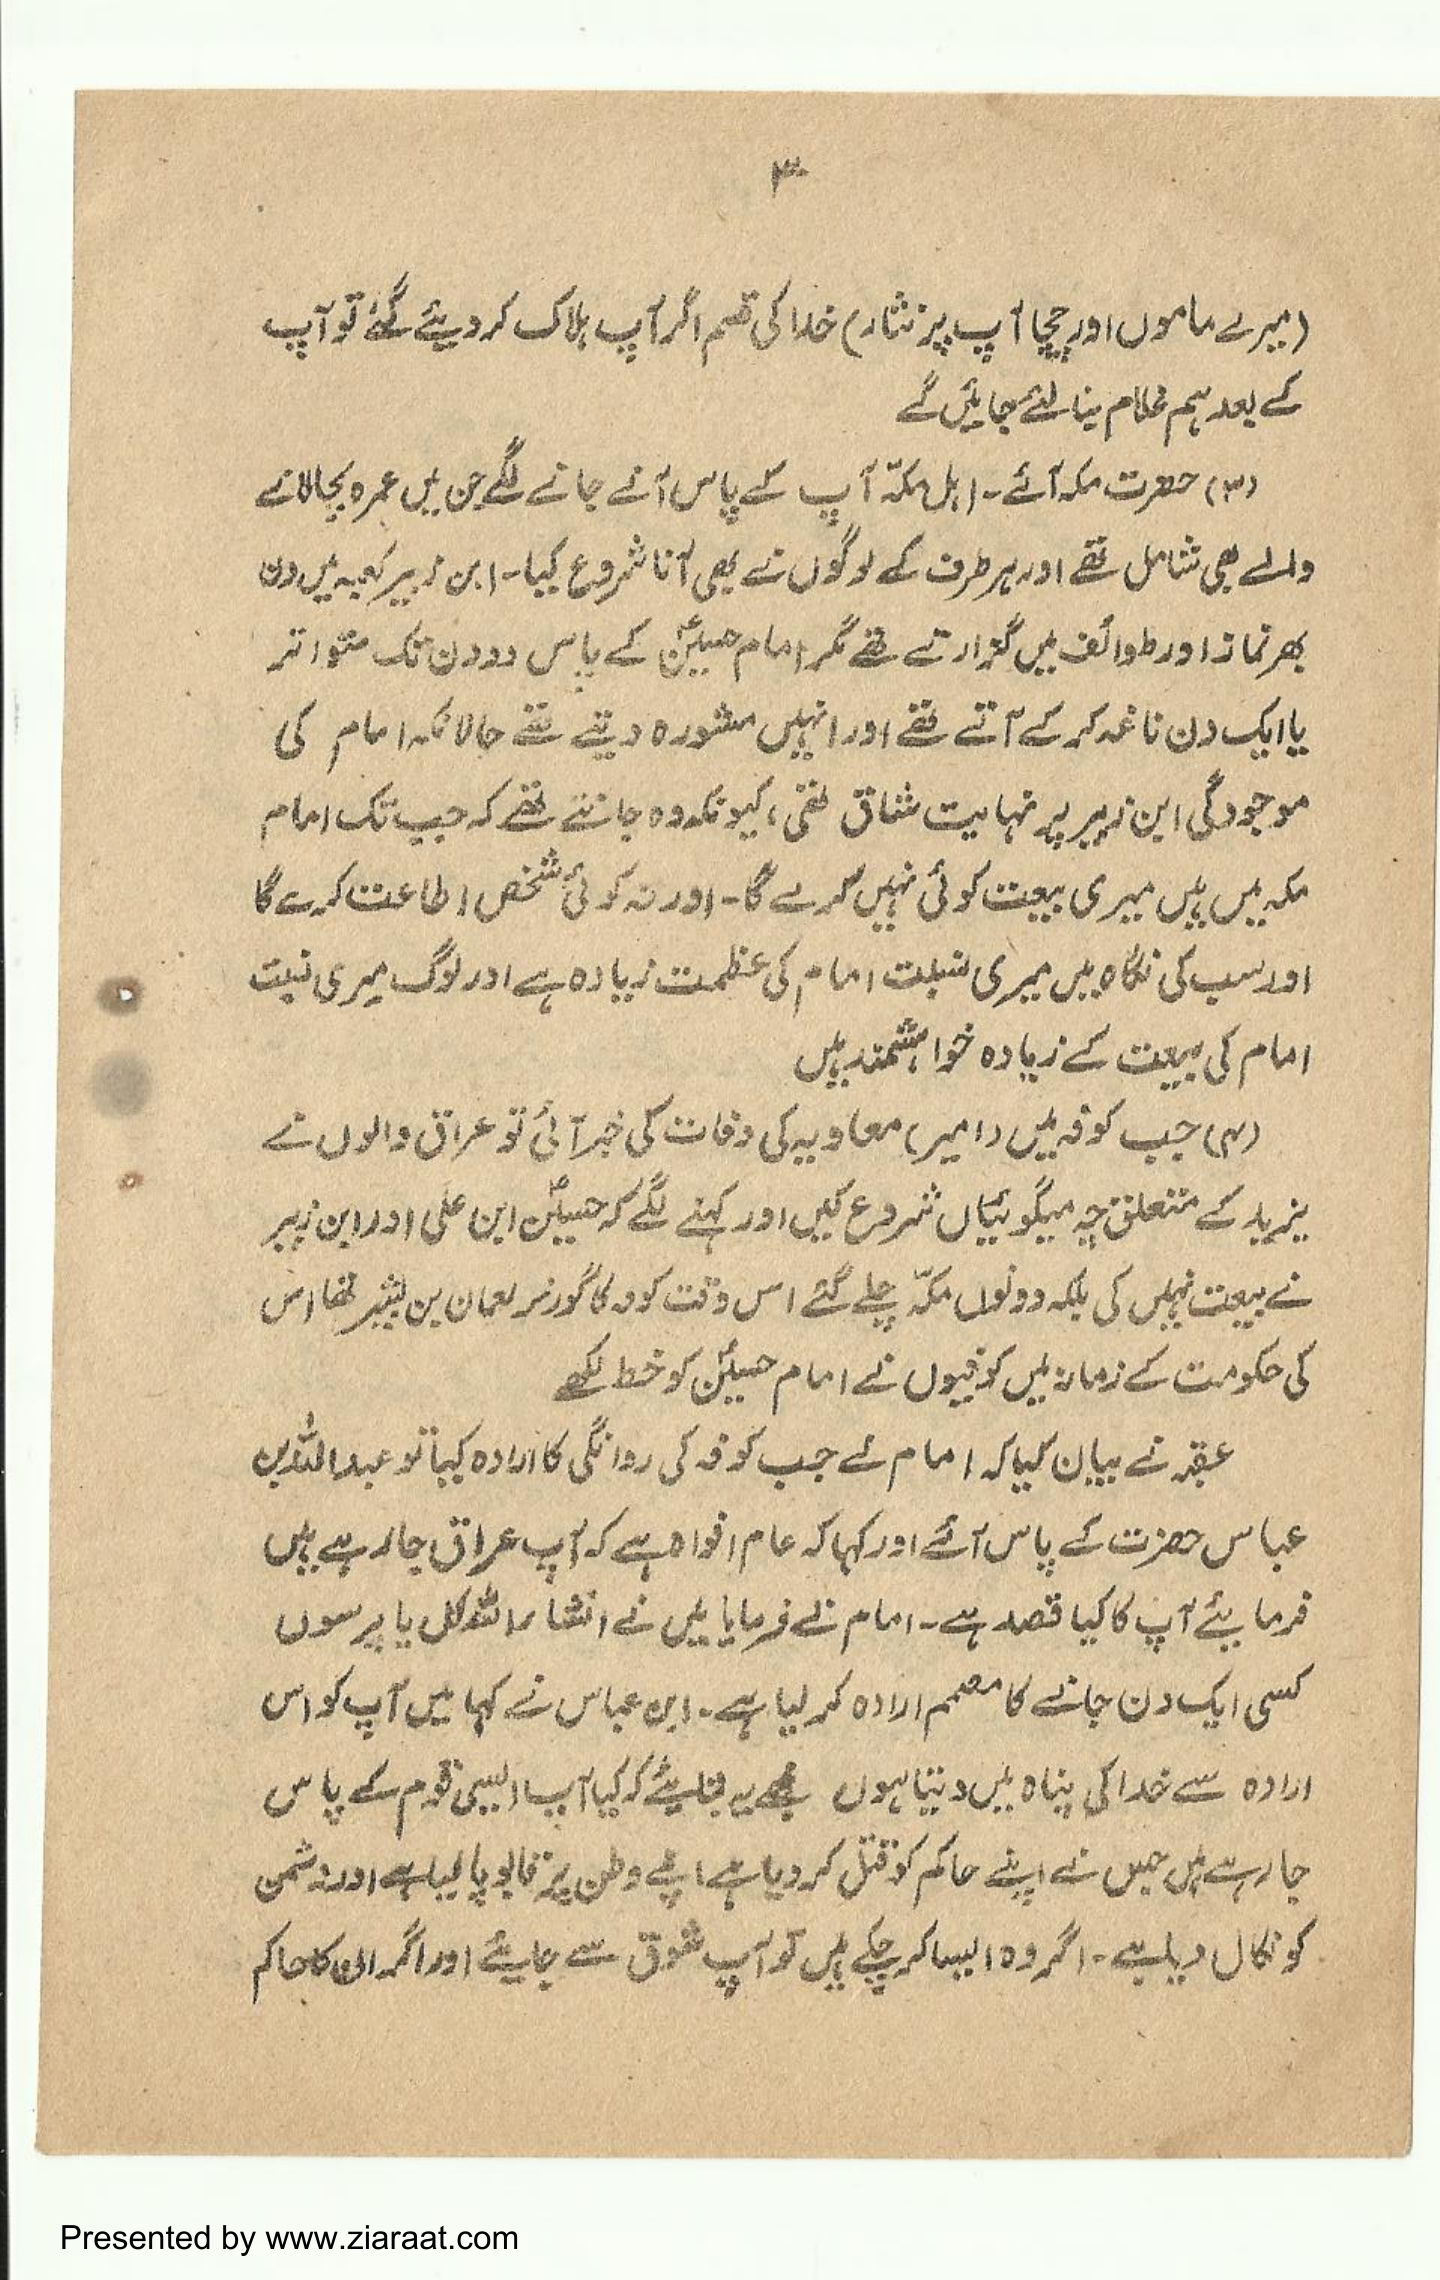 ۳
(میرے ماموں اور چچا آپ پر نثار) خدا کی قسم اگر آپ ہلاک کر دیئے گئے تو آپ
کے بعد ہم غلام بنا لئے جائیں گے
(۳) حضرت مکہ آئے۔ اہل مکہّ آپ کے پاس آنے جانے لگے جن میں عمرہ بجالانے
والے بھی شامل تھے اور ہر طرف کے لوگوں نے بھی آنا شروع کیا۔ ابن زبیر کعبہ میں دن
بھر نماز اور طوائف میں گزارتے تھے مگر امام حسینؑ کے پاس دو دن تک متواتر
یا ایک دن ناغہ کر کے آتے تھے اور انہیں مشورہ دیتے تھے حالانکہ امام کی
موجودگی ابن زبیر پر نہایت شاق تھی، کیونکہ وہ جانتے تھے کہ جب تک امام
مکہ میں ہیں میری بیعت کوئی نہیں کرے گا۔ اور نہ کوئی شخص اطاعت کرے گا
اور سب کی نگاہ میں میری نسبت امام کی عظمت زیادہ ہے اور لوگ میری نسبت
امام کی بیعت کے زیادہ خواہشمند ہیں
(۴) جب کوفہ میں (امیر) معاویہ کی وفات کی خبر آئی تو عراق والوں نے
یزید کے متعلق چہ میگوئیاں شروع کیں اور کہنے لگے کہ حسینؑ ابن علی اور ابن زبیر
نے بیعت نہیں کی بلکہ دونوں مکہّ چلے گئے اس وقت کوفہ کا گورنر نعمان بن بشیر تھا اس
کی حکومت کے زمانہ میں کوفیوں نے امام حسینؑ کو خط لکھے
عقبہ نے بیان کیا کہ امام نے جب کوفہ کی روانگی کا ارادہ کیا تو عبداللہ بن
عباس حضرت کے پاس آئے اور کہا کہ عام افواہ ہے کہ آپ عراق جا رہے ہیں
فرمایئے آپ کا کیا قصد ہے۔ امام نے فرمایا میں نے انشاءاللہ کل یا پرسوں
کسی ایک دن جانے کا مصمم ارادہ کر لیا ہے۔ ابن عباس نے کہا میں آپ کو اس
ارادہ سے خدا کی پناہ میں دیتا ہوں مجھے یہ بتایئے کہ کیا آپ ایسی قوم کے پاس
جا رہے ہیں جس نے اپنے حاکم کو قتل کر دیا ہے اپنے وطن پر قابو پا لیا ہے اور دشمن
کو نکال دیا ہے۔ اگر وہ ایسا کر چکے ہیں تو آپ شوق سے جایئے اور اگر ان کا حاکم
Presented by www.ziaraat.com